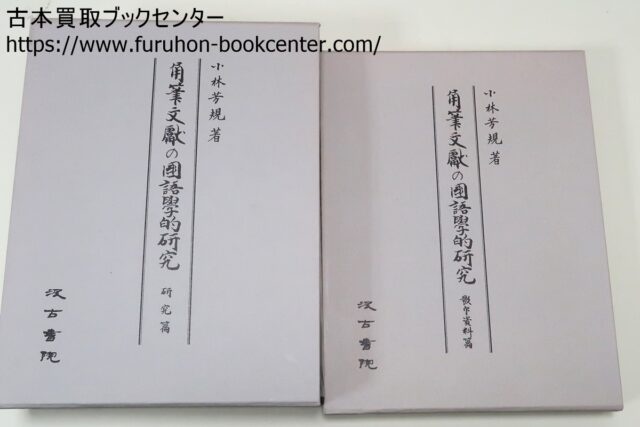 古本買取ブックセンター
https://www.furuhon-bookcenter.com/
小林芳規 著
角筆文獻の國語學的硏究
硏究篇
汲古書院
小林芳規 著
角筆文獻の國語學的硏究
影印資料篇
汲古書院